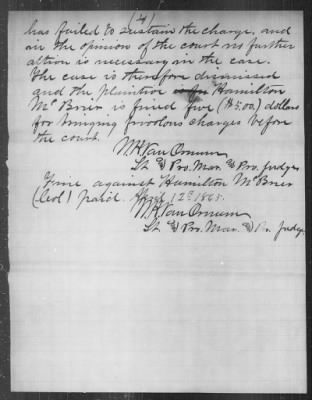 (4)
has failed to sustain the charge, and
in the opinion of the court no further
action is necessary in the case.
The case is therefore dismissed
and the plaintive Hamilton
McBrier is fined five ($5.00) dollars
for bringing frivolous charges before
the court.
W.H. Van Ornum
Lt & Pro. Mar. & Pro. Judge
Fine against Hamilton McBrier
(Col) paid. Sept 12th 1865.
W.H. Van Ornum
Lt & Pro. Mar. & Pr. Judge.